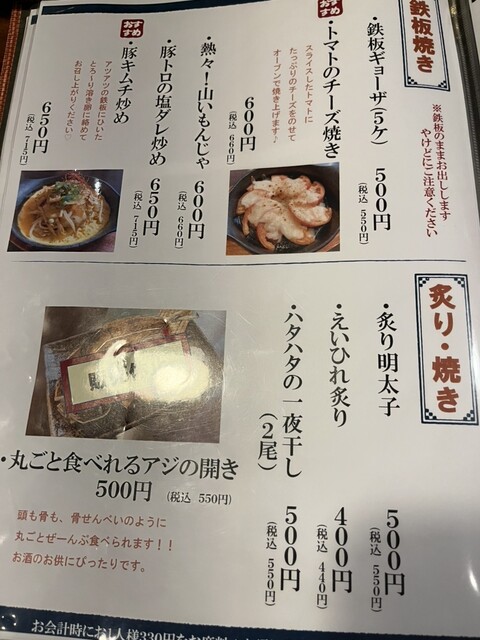 鉄板焼き
※鉄板のままお出しします
やけどにご注意ください
・鉄板ギョーザ(5ヶ) 500円
(税込 550円)
おすすめ
・トマトのチーズ焼き 600円
(税込 660円)
スライスしたトマトに
たっぷりのチーズをのせて
オーブンで焼き上げます♪
・熱々!山いもんじゃ 600円
(税込 660円)
・豚トロの塩ダレ炒め 650円
(税込 715円)
おすすめ
・豚キムチ炒め 650円
(税込 715円)
アツアツの鉄板にひいた
とろ〜り溶き卵に絡めて
お召し上がりください♡
炙り・焼き
・炙り明太子 500円
(税込 550円)
・えいひれ炙り 400円
(税込 440円)
・ハタハタの一夜干し
(2尾) 500円
(税込 550円)
・丸ごと食べれるアジの開き
500円 (税込 550円)
頭も骨も、骨せんべいのように
丸ごとぜーんぶ食べられます!!
お酒のお供にぴったりです。
お会計時にお1人様330円を